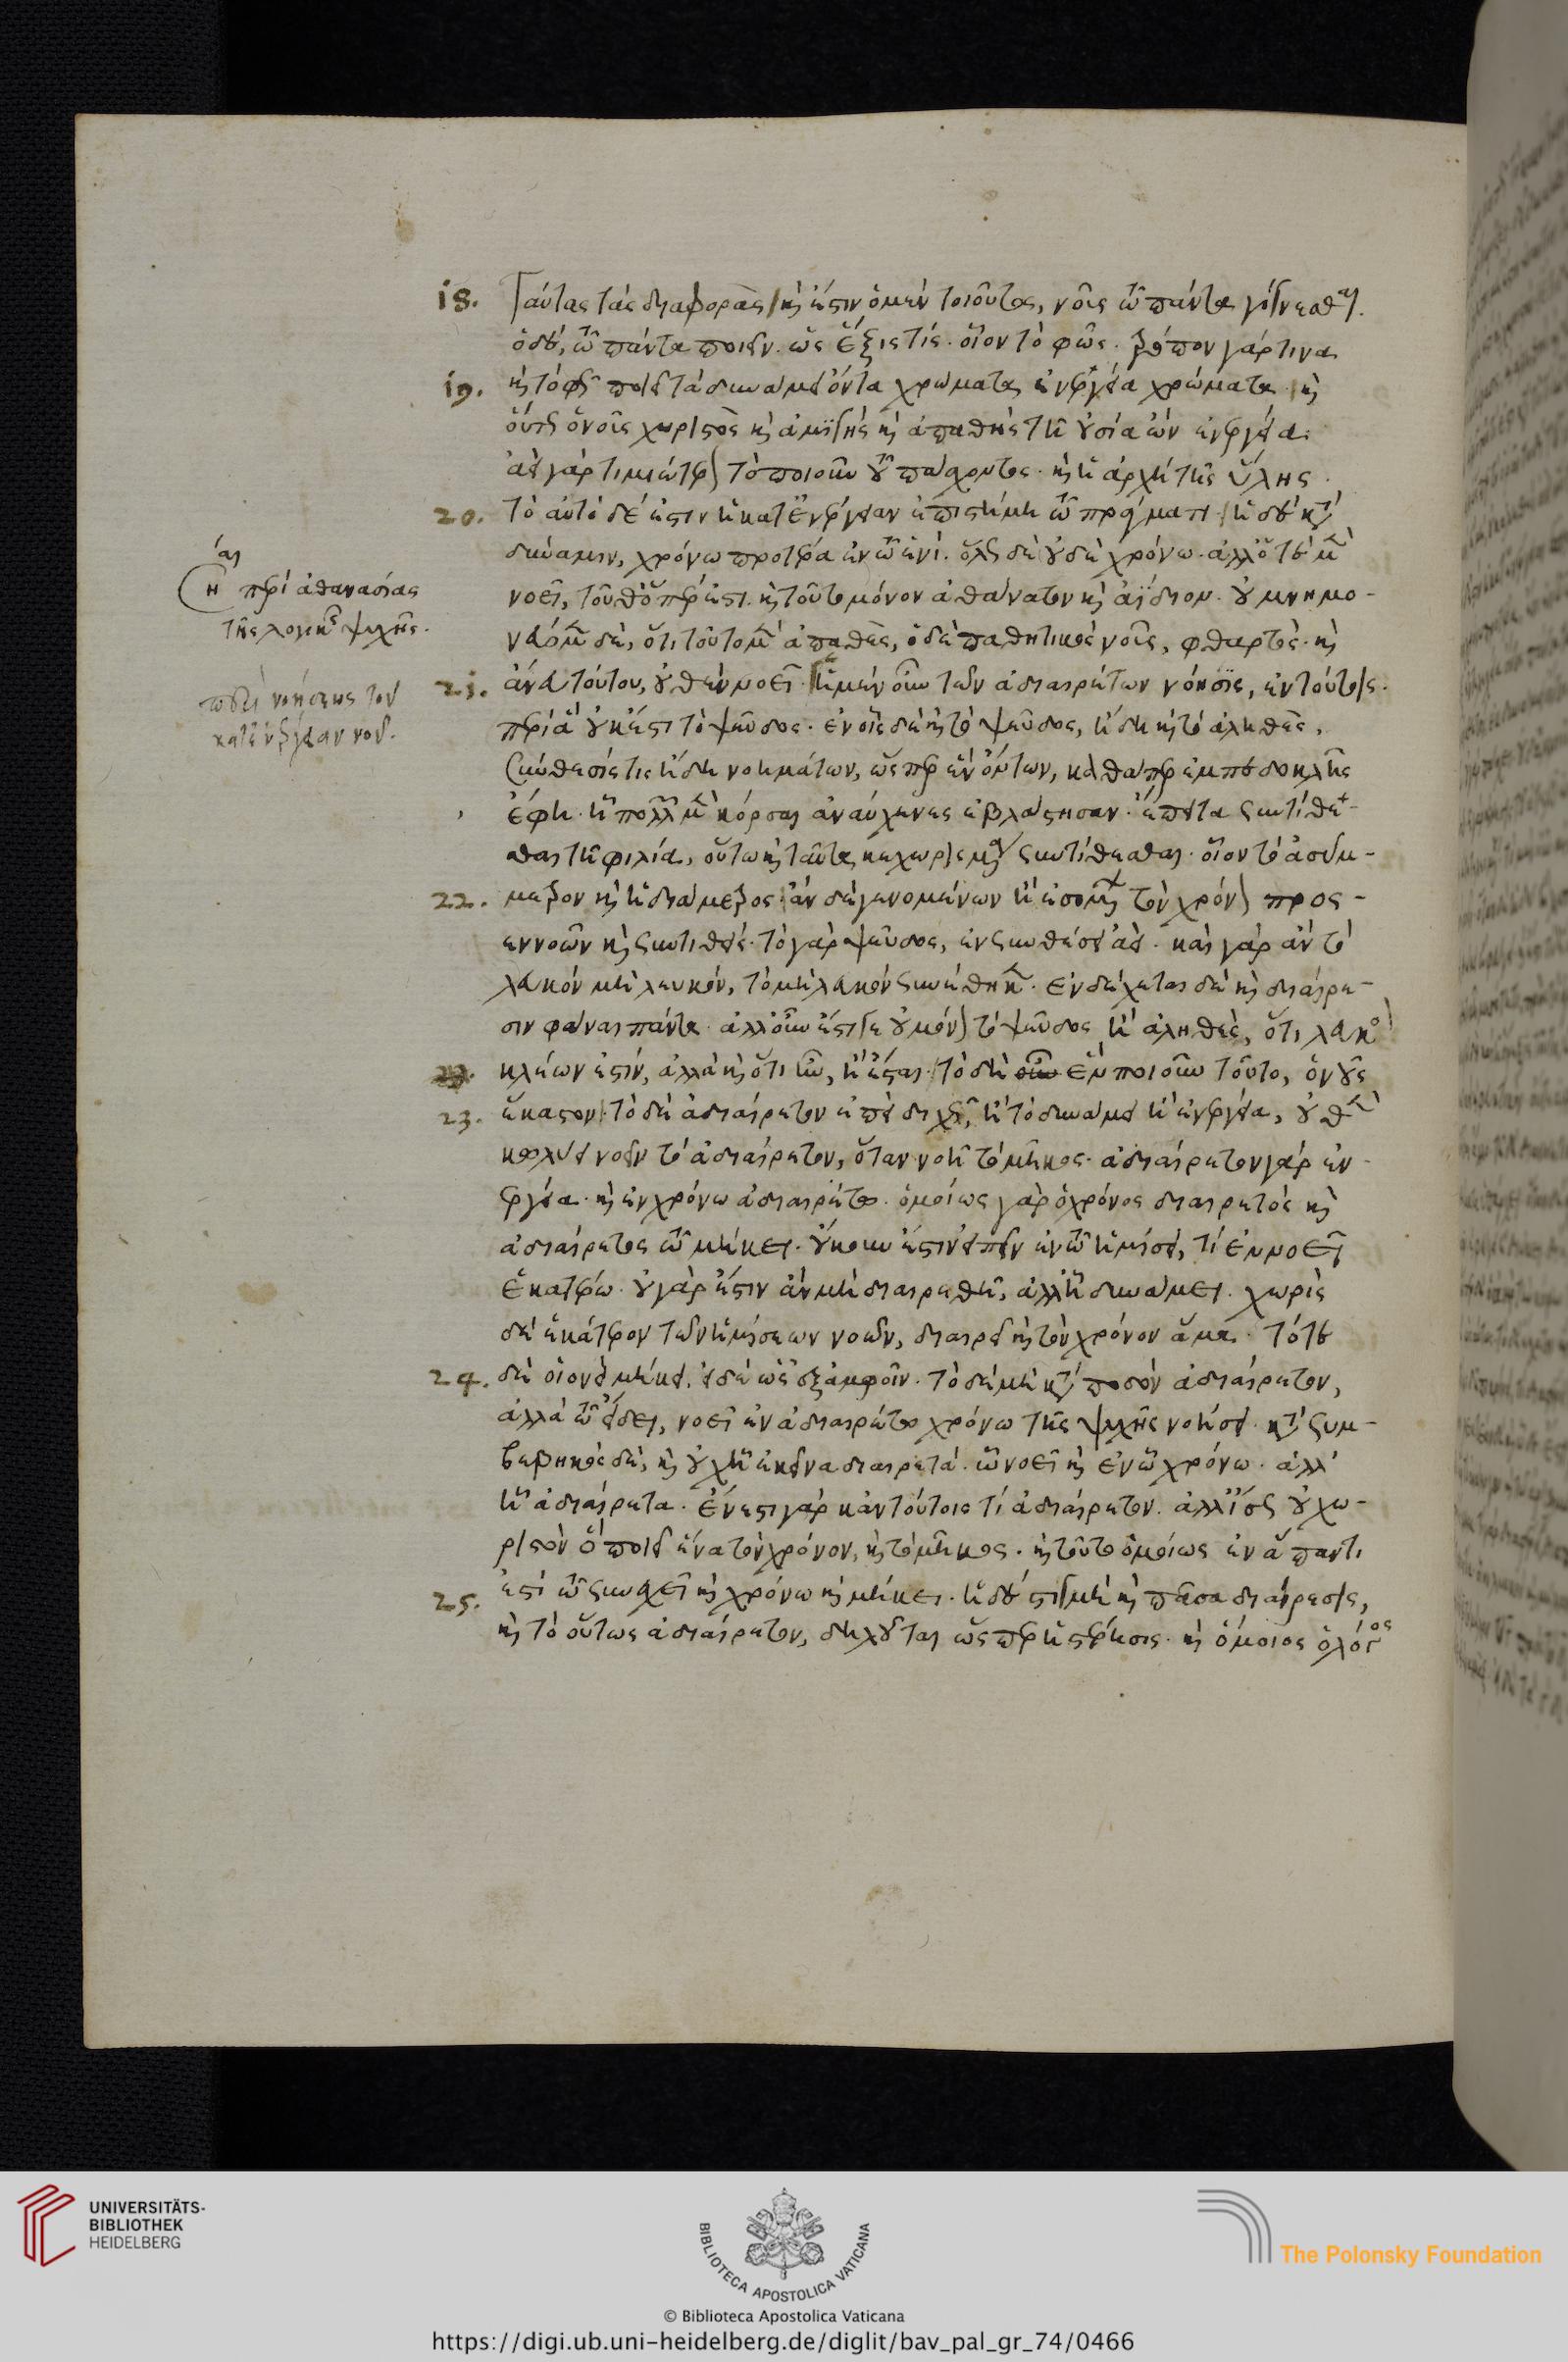 18. ταύτας τὰς διαφοράς / καὶ ἔστιν ὁ μὲν τοιοῦτος, νοῦς τῷ πάντα γίνεσθαι.
ὁ δὲ, τῷ πάντα ποιεῖν. ὡς ἕξις τίς. οἷον τὸ φῶς. τρόπον γάρ τινα
19. καὶ τὸ φῶς ποιεῖ τὰ δυνάμει ὄντα χρώματα ἐνεργείᾳ χρώματα. καὶ
οὗτος ὁ νοῦς χωριστὸς καὶ ἀμιγὴς καὶ ἀπαθὴς τῇ οὐσίᾳ ὢν ἐνεργείᾳ.
ἀεὶ γὰρ τιμιώτερον τὸ ποιοῦν τοῦ πάσχοντος. καὶ ἡ ἀρχὴ τῆς ὕλης.
20. τὸ αὐτὸ δέ ἐστιν ἡ κατ' ἐνέργειαν ἐπιστήμη τῷ πράγματι. ἡ δὲ κατὰ
δύναμιν, χρόνῳ προτέρα ἐν τῷ ἑνί. ὅλως δὲ οὐδὲ χρόνῳ. ἀλλ' ὅτε μὲν
νοεῖ, τοῦθ' ὅπερ ἐστὶ. καὶ τοῦτο μόνον ἀθάνατον καὶ ἀΐδιον. οὐ μνημο-
νεύομεν δὲ, ὅτι τοῦτο μὲν ἀπαθὲς, ὁ δὲ παθητικὸς νοῦς, φθαρτὸς. καὶ
21. ἄνευ τούτου, οὐθὲν νοεῖ. ἡ μὲν οὖν τῶν ἀδιαιρέτων νόησις, ἐν τούτοις.
περὶ ἃ οὐκ ἔστι τὸ ψεῦδος. ἐν οἷς δὲ καὶ τὸ ψεῦδος, ἤδη καὶ τὸ ἀληθὲς,
σύνθεσίς τις ἤδη νοημάτων, ὥσπερ ἓν ὄντων, καθάπερ ἐμπεδοκλῆς
ἔφη. ᾗ πολλῶν μὲν κόρσαι ἀναύχενες ἐβλάστησαν. ἔπειτα συντίθε-
σθαι τῇ φιλίᾳ, οὕτω καὶ ταῦτα κεχωρισμένα συντίθεσθαι. οἷον τὸ ἀσύμ-
22. μετρον καὶ ἡ διάμετρος. ἂν δὲ γενομένων ἢ ἐσομένων τὸν χρόνον προς-
εννοῶν καὶ συντιθείς. τὸ γὰρ ψεῦδος, ἐν συνθέσει ἀεί. καὶ γὰρ ἂν τὸ
λευκὸν μὴ λευκόν, τὸ μὴ λευκὸν συνέθηκεν. ἐνδέχεται δὲ καὶ διαίρε-
σιν φάναι πάντα. ἀλλ' οὖν ἔστι γε οὐ μόνον τὸ ψεῦδος ἢ ἀληθὲς, ὅτι λευκὸς
κλέων ἐστίν, ἀλλὰ καὶ ὅτι ἦν, ἢ ἔσται. τὸ δὴ ἓν ποιοῦν τοῦτο, ὁ νοῦς
23. ἕκαστον. τὸ δὲ ἀδιαίρετον ἐπεὶ διχῶς, ἢ τὸ δυνάμει ἢ ἐνεργείᾳ, οὐθὲν
κωλύει νοεῖν τὸ ἀδιαίρετον, ὅταν νοῇ τὸ μῆκος. ἀδιαίρετον γὰρ ἐν-
εργείᾳ. καὶ ἐν χρόνῳ ἀδιαιρέτῳ. ὁμοίως γὰρ ὁ χρόνος διαιρετὸς καὶ
ἀδιαίρετος τῷ μήκει. οὔκουν ἔστιν εἰπεῖν ἐν τῷ ἡμίσει, τί ἐννοεῖ
ἑκατέρῳ. οὐ γὰρ ἔστιν ἂν μὴ διαιρεθῇ, ἀλλ' ἢ δυνάμει. χωρὶς
δὲ ἑκάτερον τῶν ἡμίσεων νοῶν, διαιρεῖ καὶ τὸν χρόνον ἅμα. τότε
24. δὲ οἱονεὶ μήκει. εἰ δὲ ὡς ἐξ ἀμφοῖν. τὸ δὲ μὴ κατὰ ποσὸν ἀδιαίρετον,
ἀλλὰ τῷ εἴδει, νοεῖ ἐν ἀδιαιρέτῳ χρόνῳ τῆς ψυχῆς νοήσει. κατὰ συμ-
βεβηκὸς δὲ, καὶ οὐχ ᾗ ἐκεῖνα διαιρετά. ᾧ νοεῖ καὶ ἐν ᾧ χρόνῳ. ἀλλ'
ᾗ ἀδιαίρετα. ἔνεστι γὰρ κἂν τούτοις τί ἀδιαίρετον. ἀλλ' ἴσως οὐ χω-
ριστὸν ὃ ποιεῖ ἕνα τὸν χρόνον, καὶ τὸ μῆκος. καὶ τοῦτο ὁμοίως ἐν ἅπαντί
25. ἐστι τῷ συνεχεῖ καὶ χρόνῳ καὶ μήκει. ἡ δὲ στιγμὴ καὶ πᾶσα διαίρεσις,
καὶ τὸ οὕτως ἀδιαίρετον, δηλοῦται ὥσπερ ἡ στέρησις. καὶ ὅμοιος ὁ λόγος
ση(μείωσ)αι περὶ ἀθανασίας
τῆς λογικῆς ψυχῆς.
περὶ νοήσεως τοῦ
κατ' ἐνέργειαν νοῦ.
UNIVERSITÄTS-
BIBLIOTHEK
HEIDELBERG
BIBLIOTECA APOSTOLICA VATICANA
The Polonsky Foundation
© Biblioteca Apostolica Vaticana
https://digi.ub.uni-heidelberg.de/diglit/bav_pal_gr_74/0466